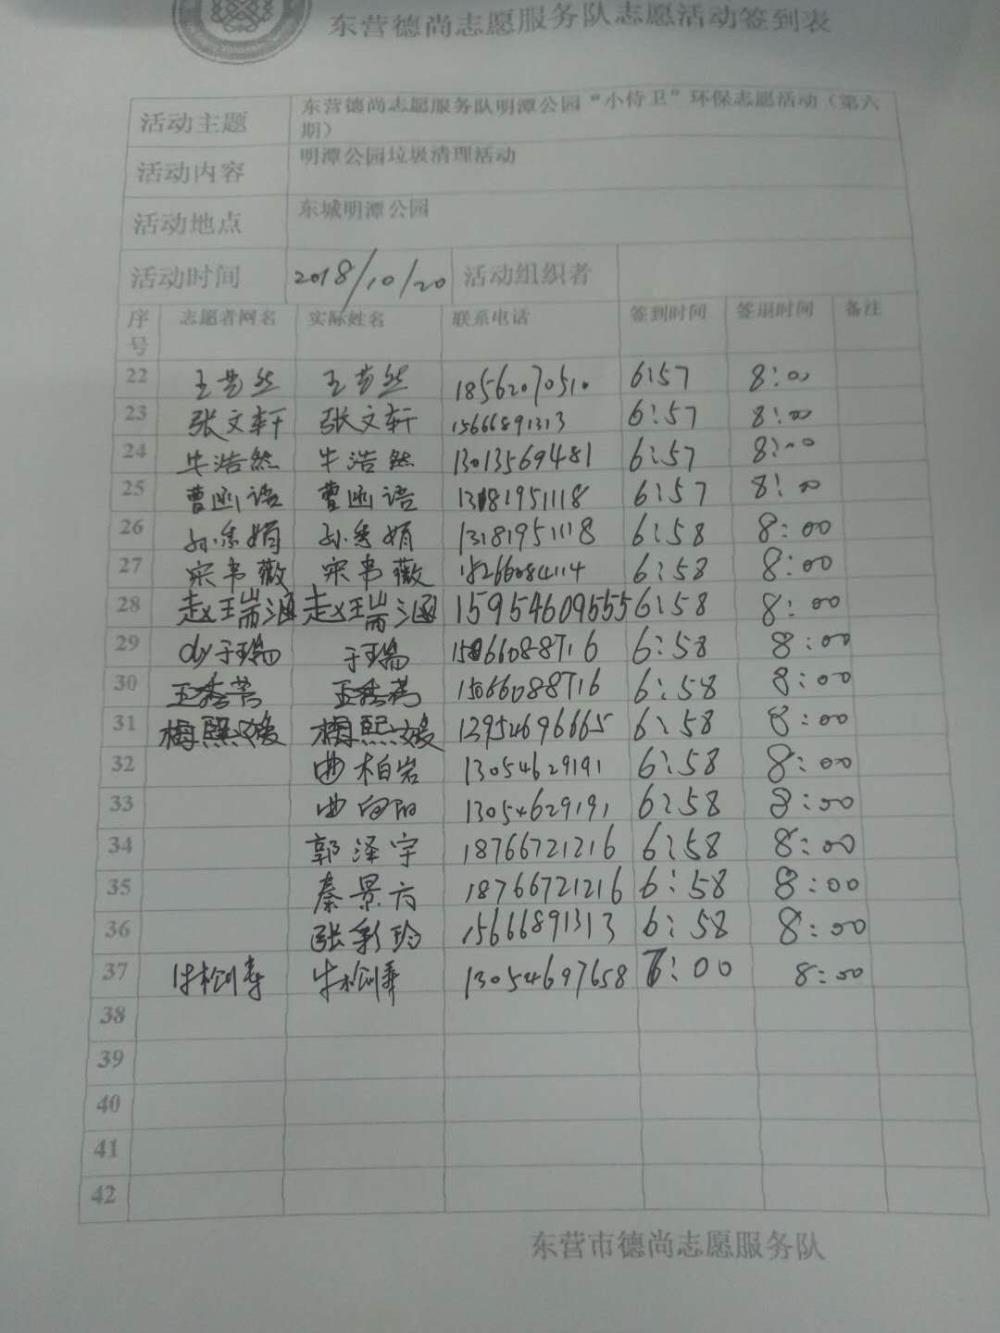 东营德尚志愿服务队志愿活动签到表
活动主题 东营德尚志愿服务队明潭公园“小侍卫”环保志愿活动（第六
期）
活动内容 明潭公园垃圾清理活动
活动地点 东城明潭公园
活动时间 2018/10/20 活动组织者
序号 志愿者网名 实际姓名 联系电话 签到时间 签退时间 备注
22 王艺丝 王艺丝 18562070510 6:57 8:00
23 张文轩 张文轩 15666891313 6:57 8:00
24 牛浩然 牛浩然 13013569481 6:57 8:00
25 曹函语 曹函语 13181951118 6:57 8:00
26 孙秀娟 孙秀娟 13181951118 6:58 8:00
27 宋韦薇 宋韦薇 18266084114 6:58 8:00
28 赵瑞涵 赵瑞涵 15954609555 6:58 8:00
29 于瑞 于瑞 15066088716 6:58 8:00
30 王秀芳 15066088716 6:58 8:00
31 梅熙媛 梅熙媛 13954696665 6:58 8:00
32 曲柏岩 13054629191 6:58 8:00
33 曲向阳 13054629191 6:58 8:00
34 郭泽宇 18766721216 6:58 8:00
35 秦景方 18766721216 6:58 8:00
36 张彩玲 15666891313 6:58 8:00
37 牛松涛 13054697658 7:00 8:00
38
39
40
41
42
东营市德尚志愿服务队